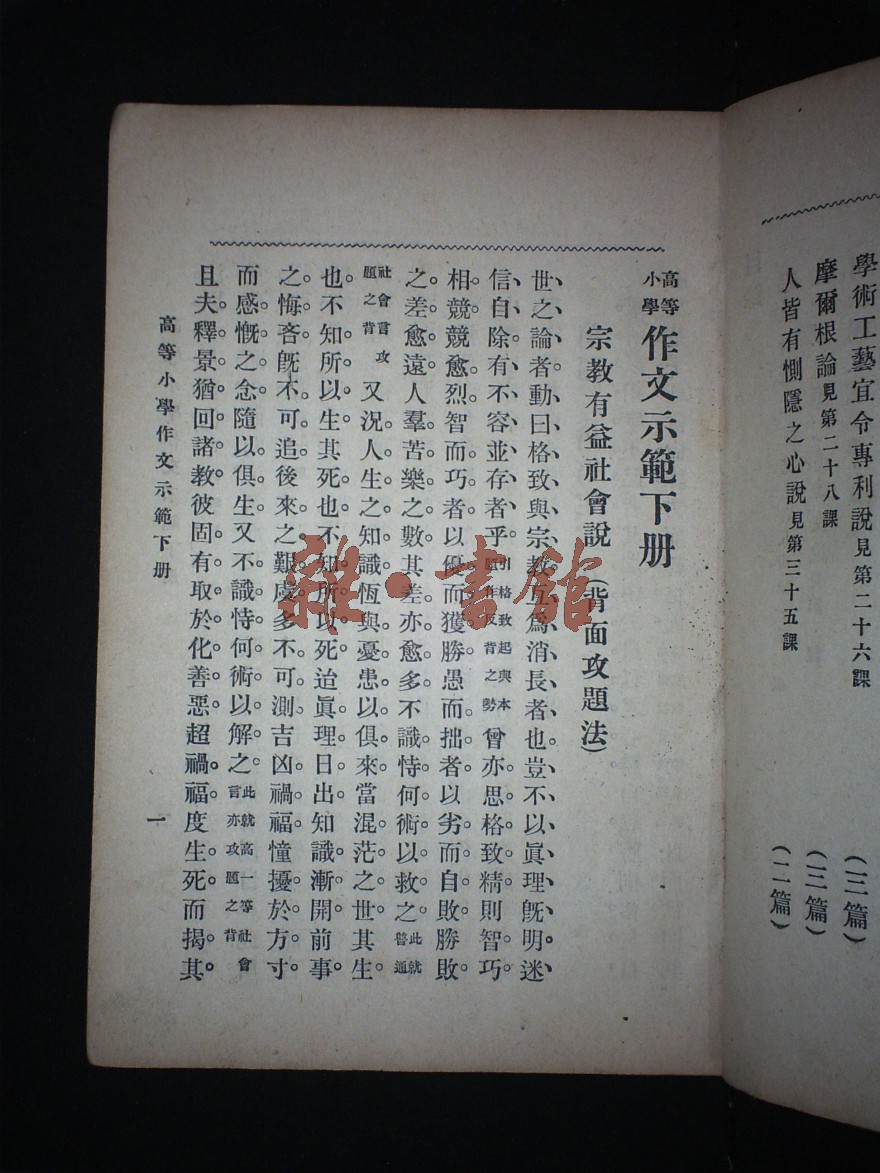 學術工藝宜令專利說見第二十六課（三篇）
摩爾根論見第二十八課（三篇）
人皆有惻隱之心說見第三十五課（二篇）
高等小學作文示範下册
宗教有益社會說（背面攻題法）
世之論者動曰格致與宗教互爲消長者也豈不以眞理旣明迷
信自除有不容並存者乎引格致起與本題作反背之勢曾亦思格致精則智巧
相競競愈烈智而巧者以優而獲勝愚而拙者以劣而自敗勝敗
之差愈遠人羣苦樂之數其差亦愈多不識恃何術以救之此就普通
社會言攻題之背又況人生之知識恆與憂患以俱來當混茫之世其生
也不知所以生其死也不知所以死迨眞理日出知識漸開前事
之悔吝旣不可追後來之艱虞多不可測吉凶禍福憧擾於方寸
而感慨之念隨以俱生又不識恃何術以解之此就高一等社會言亦攻題之背
且夫釋景猶回諸教彼固有取於化善惡超禍福度生死而揭其
高等小學作文示範下册
一
雜·書館